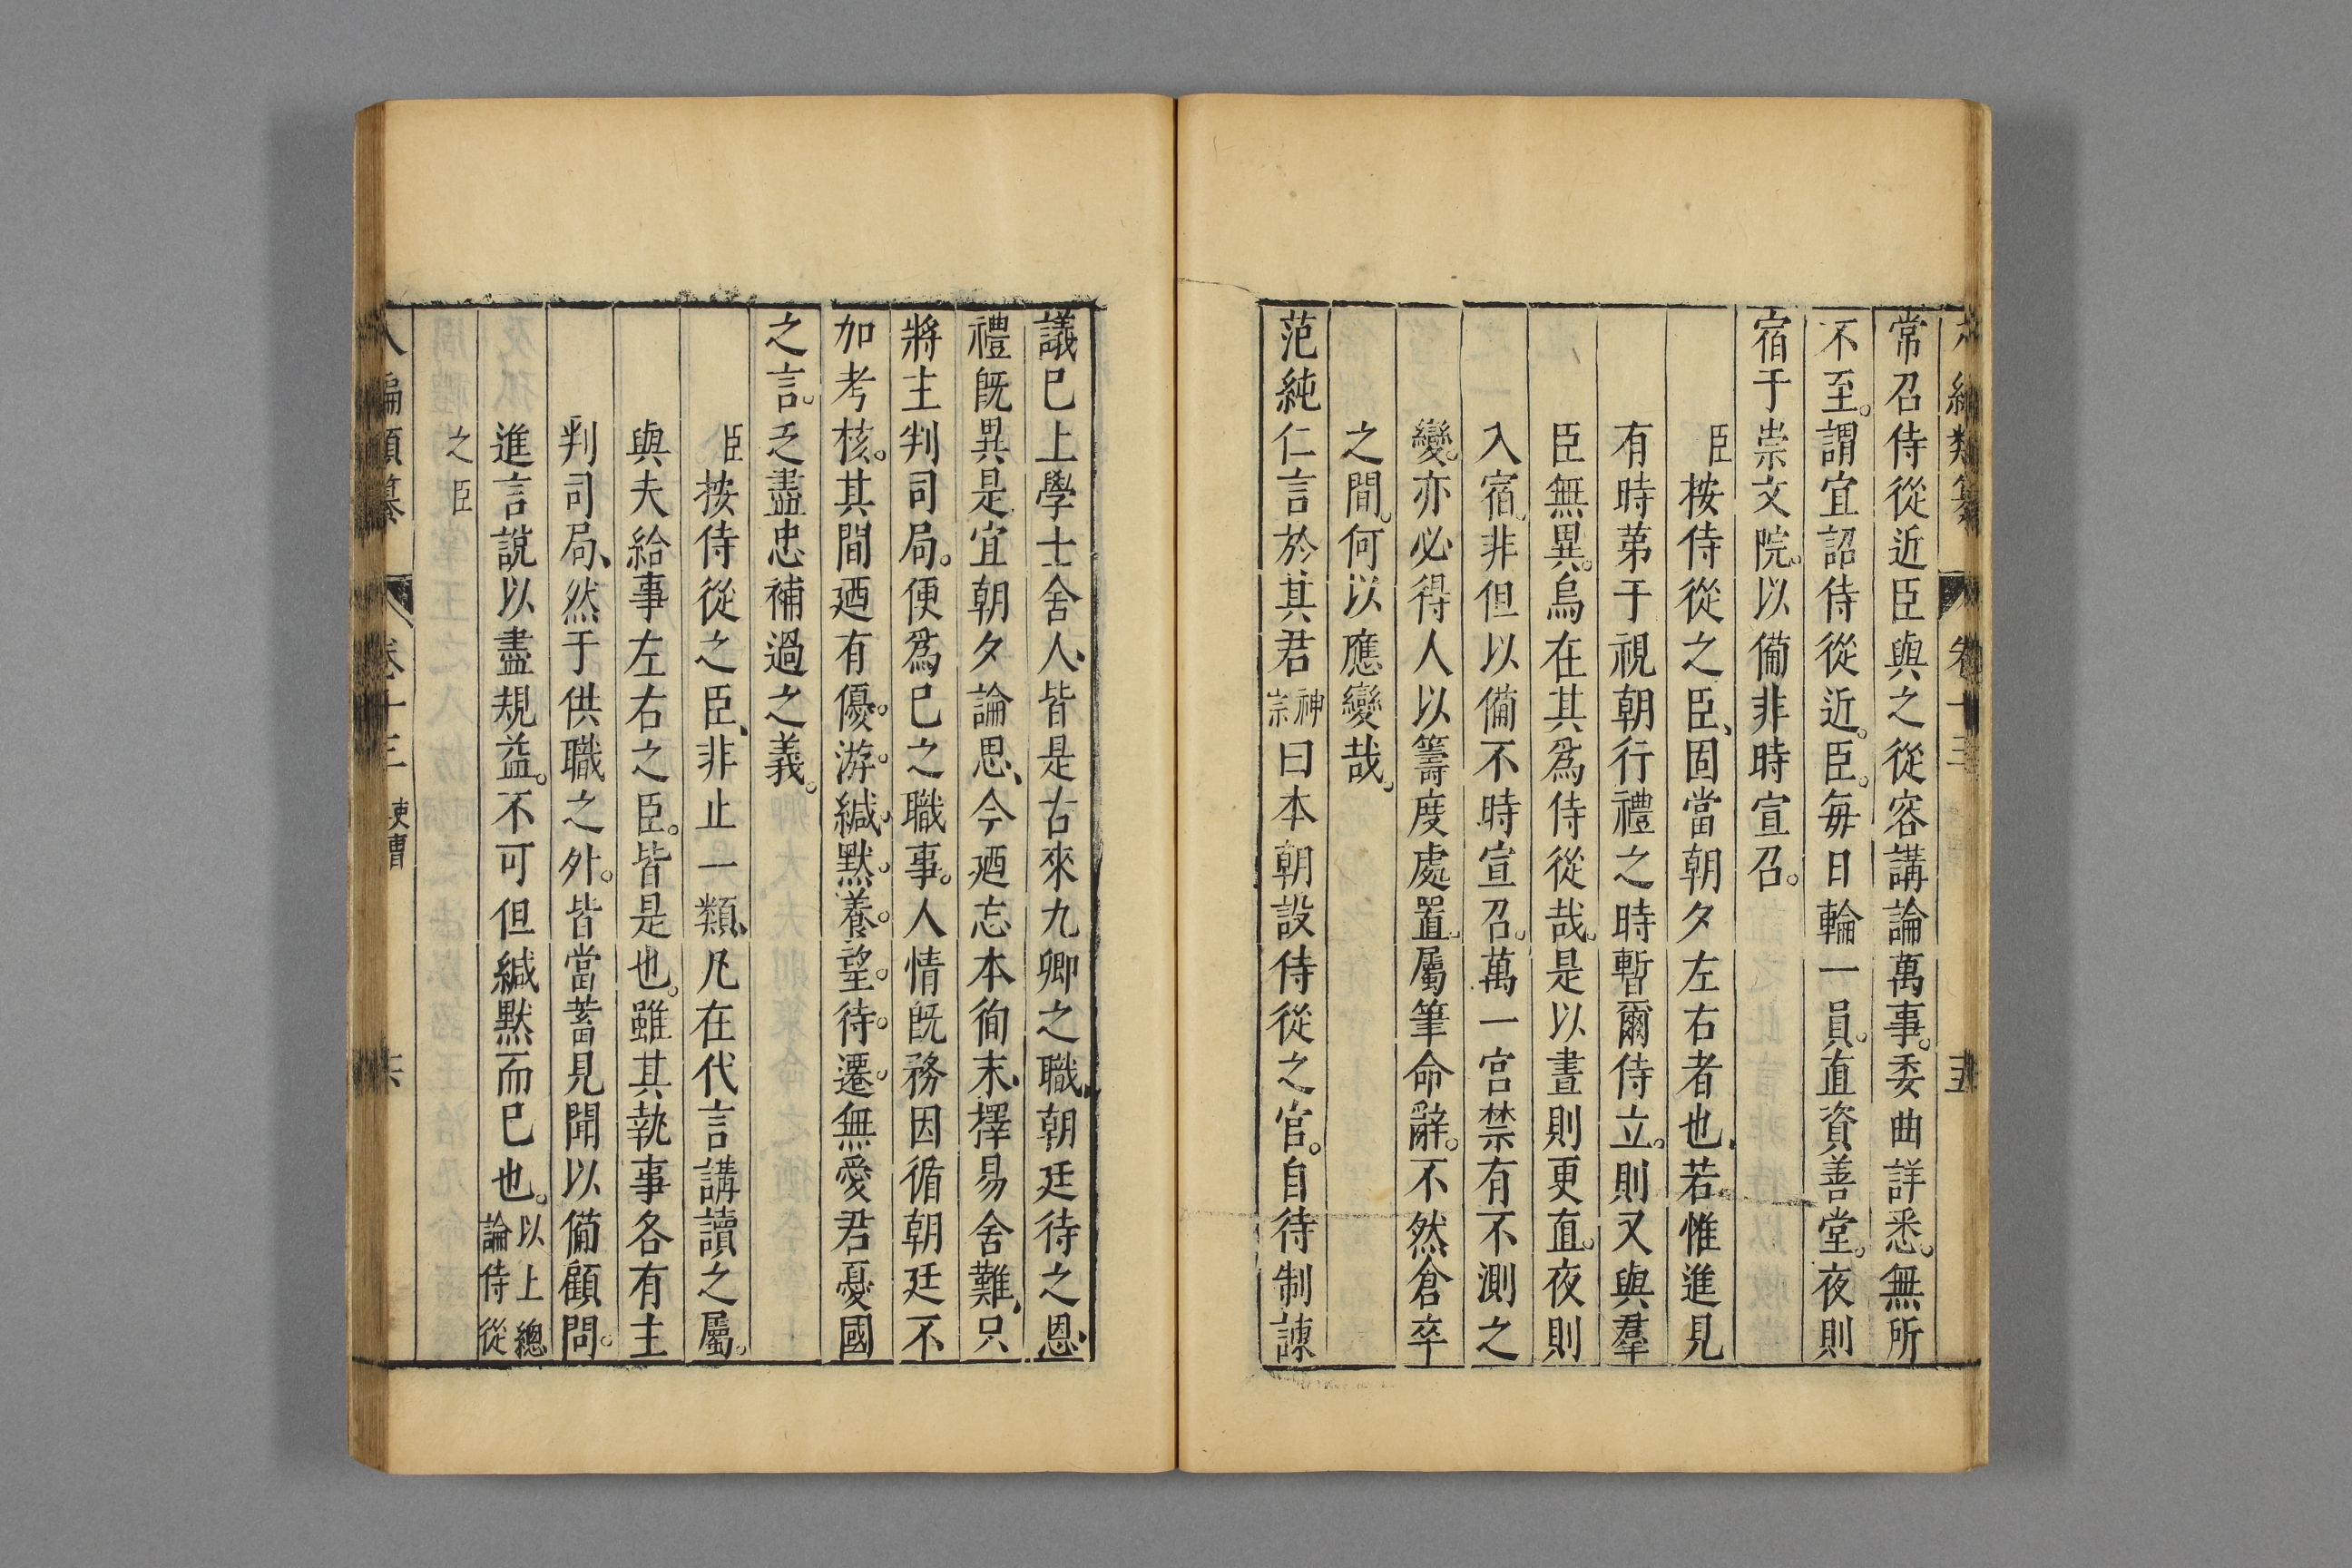 編類纂 卷十三 十五
常召侍從近臣與之從容講論萬事。委曲詳悉。無所
不至。謂宜詔侍從近。臣。每日輪一員。直資善堂。夜則
宿于崇文院。以備非時宣召。
臣按侍從之臣、固當朝夕左右者也、若惟進見
有時苐于視朝行禮之時暫爾侍立。則又與羣
臣無異。烏在其爲侍從哉。是以晝則更直。夜則
入宿。非但以備不時宣召。萬一宫禁有不測之
變。亦必得人以籌度處置。屬筆命辭。不然倉卒
之間。何以應變哉。
范純仁言於其君神宗曰本朝設侍從之官。自待制諫
議已上學士舍人、皆是古來九卿之職、朝廷待之恩、
禮旣異是宜朝夕論思、今廼忘本徇末、擇易舍難、只
將主判司局。便爲已之職事。人情旣務因循朝廷不
加考核。其間廼有優。游。緘。默。養。望。待。遷。無愛君憂國
之言。乏盡忠補過之義。
臣按侍從之臣、非止一類、凡在代言講讀之屬。
與夫給事左右之臣。皆是也。雖其執事各有主
判司局、然于供職之外。皆當蓄見聞以備顧問。
進言說以盡規益。不可但緘默而已也。以上總論侍從
之臣
八編類纂 卷十三 吏曹 十六